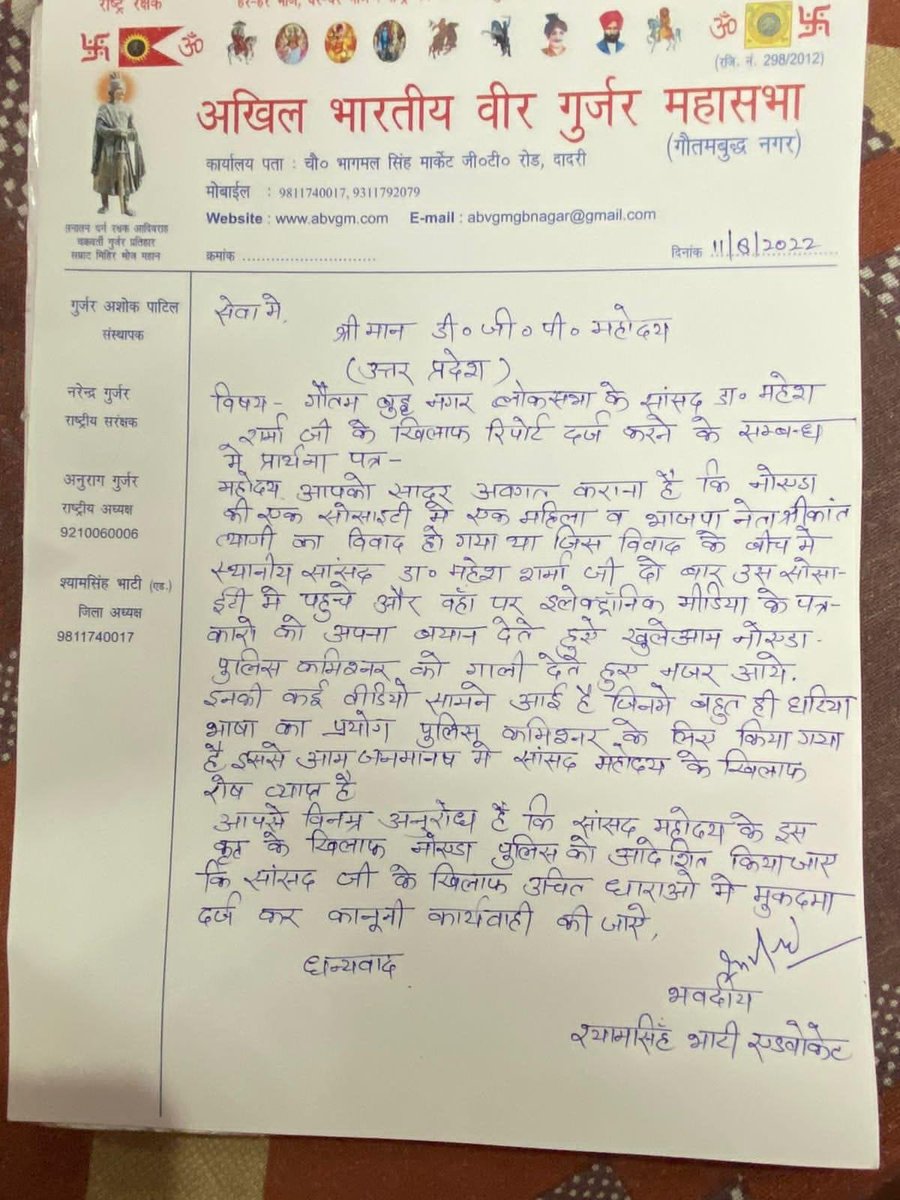 राष्ट्र रक्षक
(रजि. नं. 298/2012)
अखिल भारतीय वीर गुर्जर महासभा
(गौतमबुद्ध नगर)
कार्यालय पता : चौ० भागमल सिंह मार्केट जी०टी० रोड, दादरी
मोबाईल : 9811740017, 9311792079
Website : www.abvgm.com E-mail : abvgmgbnagar@gmail.com
सनातन धर्म रक्षक आदिवराह
चक्रवर्ती गुर्जर प्रतिहार
सम्राट मिहिर भोज महान
क्रमांक ............................
दिनांक 11/8/2022
गुर्जर अशोक पाटिल
संस्थापक
नरेन्द्र गुर्जर
राष्ट्रीय सरंक्षक
अनुराग गुर्जर
राष्ट्रीय अध्यक्ष
9210060006
श्यामसिंह भाटी (एड.)
जिला अध्यक्ष
9811740017
सेवा मे,
श्री मान डी० जी० पी० महोदय
(उत्तर प्रदेश)
विषय- गौतम बुद्ध नगर लोकसभा के सांसद डा० महेश
शर्मा जी के खिलाफ रिपोर्ट दर्ज करने के सम्बन्ध
मे प्रार्थना पत्र-
महोदय आपको सादर अवगत कराना है कि नोएडा
की एक सोसाइटी मे एक महिला व भाजपा नेता श्रीकांत
त्यागी का विवाद हो गया था जिस विवाद के बीच मे
स्थानीय सांसद डा० महेश शर्मा जी दो बार उस सोसा-
ईटी मे पहुचे और वहाँ पर इलेक्ट्रॉनिक मीडिया के पत्र-
कारो को अपना बयान देते हुऐ खुलेआम नोएडा-
पुलिस कमिश्नर को गाली देते हुए नजर आये.
इनकी कई वीडियो सामने आई है जिनमे बहुत ही घटिया
भाषा का प्रयोग पुलिस कमिश्नर के लिए किया गया
है इससे आम जनमानष मे सांसद महोदय के खिलाफ
रोष व्याप्त है
आपसे विनम्र अनुरोध है कि सांसद महोदय के इस
कृत के खिलाफ नोएडा पुलिस को आदेशित किया जाए
कि सांसद जी के खिलाफ उचित धाराओ मे मुकदमा
दर्ज कर कानूनी कार्यवाही की जाऐ,
धन्यवाद
भवदीय
श्यामसिंह भाटी एडवोकेट